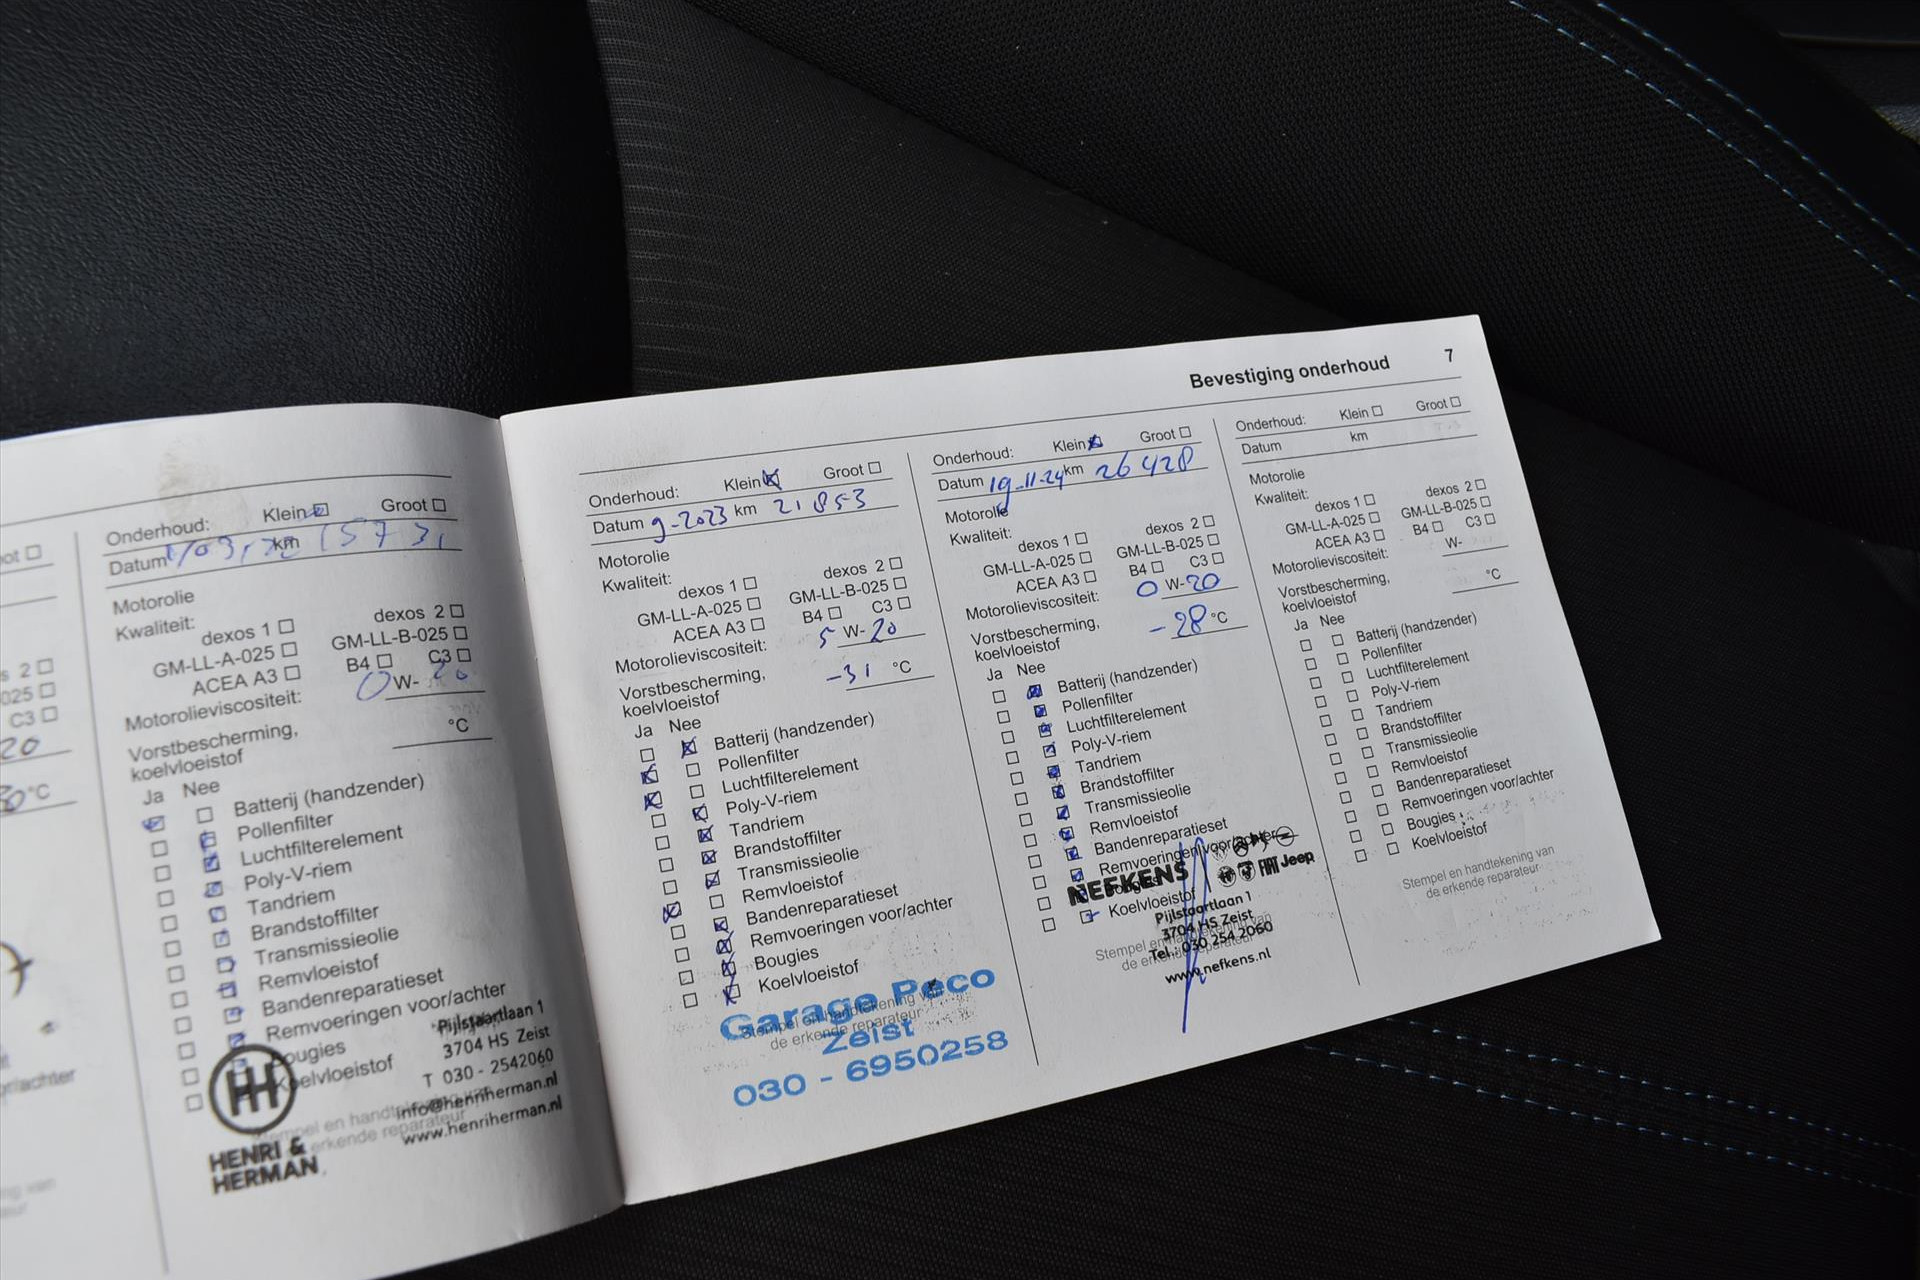 Bevestiging onderhoud 7
oot
s 2
025
C3
20
°C
r/achter
Onderhoud: Klein Groot
Datum km 15731
Motorolie
Kwaliteit:
dexos 1 dexos 2
GM-LL-A-025 GM-LL-B-025
ACEA A3 B4 C3
Motorolieviscositeit: 0 W- 20
Vorstbescherming,
koelvloeistof °C
Ja Nee
Batterij (handzender)
Pollenfilter
Luchtfilterelement
Poly-V-riem
Tandriem
Brandstoffilter
Transmissieolie
Remvloeistof
Bandenreparatieset
Remvoeringen voor/achter
Bougies
Koelvloeistof
Stempel en handtekening van
de erkende reparateur
HENRI &
HERMAN
Pijlstaartlaan 1
3704 HS Zeist
T 030 - 2542060
info@henriherman.nl
www.henriherman.nl
Onderhoud: Klein Groot
Datum 9-2023 km 21853
Motorolie
Kwaliteit:
dexos 1 dexos 2
GM-LL-A-025 GM-LL-B-025
ACEA A3 B4 C3
Motorolieviscositeit: 5 W- 20
Vorstbescherming,
koelvloeistof -31 °C
Ja Nee
Batterij (handzender)
Pollenfilter
Luchtfilterelement
Poly-V-riem
Tandriem
Brandstoffilter
Transmissieolie
Remvloeistof
Bandenreparatieset
Remvoeringen voor/achter
Bougies
Koelvloeistof
Stempel en handtekening van
de erkende reparateur
Garage Peco
Zeist
030 - 6950258
Onderhoud: Klein Groot
Datum 19-11-24 km 26428
Motorolie
Kwaliteit:
dexos 1 dexos 2
GM-LL-A-025 GM-LL-B-025
ACEA A3 B4 C3
Motorolieviscositeit: 0 W- 20
Vorstbescherming,
koelvloeistof -28 °C
Ja Nee
Batterij (handzender)
Pollenfilter
Luchtfilterelement
Poly-V-riem
Tandriem
Brandstoffilter
Transmissieolie
Remvloeistof
Bandenreparatieset
Remvoeringen voor/achter
Bougies
Koelvloeistof
Stempel en handtekening van
de erkende reparateur
NEFKENS FIAT Jeep
Pijlstaartlaan 1
3704 HS Zeist
Tel.: 030 254 2060
www.nefkens.nl
Onderhoud: Klein Groot
Datum km
Motorolie
Kwaliteit:
dexos 1 dexos 2
GM-LL-A-025 GM-LL-B-025
ACEA A3 B4 C3
Motorolieviscositeit: W-
Vorstbescherming,
koelvloeistof °C
Ja Nee
Batterij (handzender)
Pollenfilter
Luchtfilterelement
Poly-V-riem
Tandriem
Brandstoffilter
Transmissieolie
Remvloeistof
Bandenreparatieset
Remvoeringen voor/achter
Bougies
Koelvloeistof
Stempel en handtekening van
de erkende reparateur